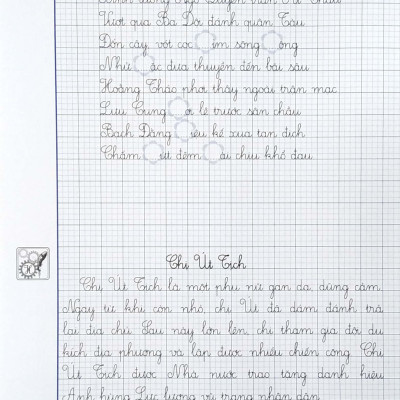 Vượt qua Ba Dội đánh quân Tàu
Đốn cây vót cọc im sông ông
Nhử ặc đưa thuyền đến bãi sâu
Hoằng Tháo phơi thây ngoài trận mạc
Lưu Cung ơi lệ trước sân chầu
Bạch Đằng iêu kế xưa tan địch
Chấm út đêm ài chịu khổ đau
Chị Út Tịch
Chị Út Tịch là một phụ nữ gan dạ, dũng cảm.
Ngay từ khi còn nhỏ, chị Út đã dám đánh trả
lại địa chủ. Sau này lớn lên, chị tham gia đội du
kích địa phương và lập được nhiều chiến công. Chị
Út Tịch được Nhà nước trao tặng danh hiệu
Anh hùng Lực lượng vũ trang nhân dân.